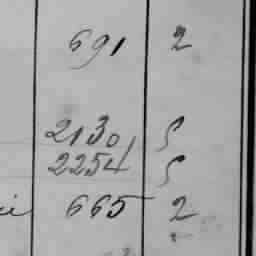 691 2
2130
2254
665 2